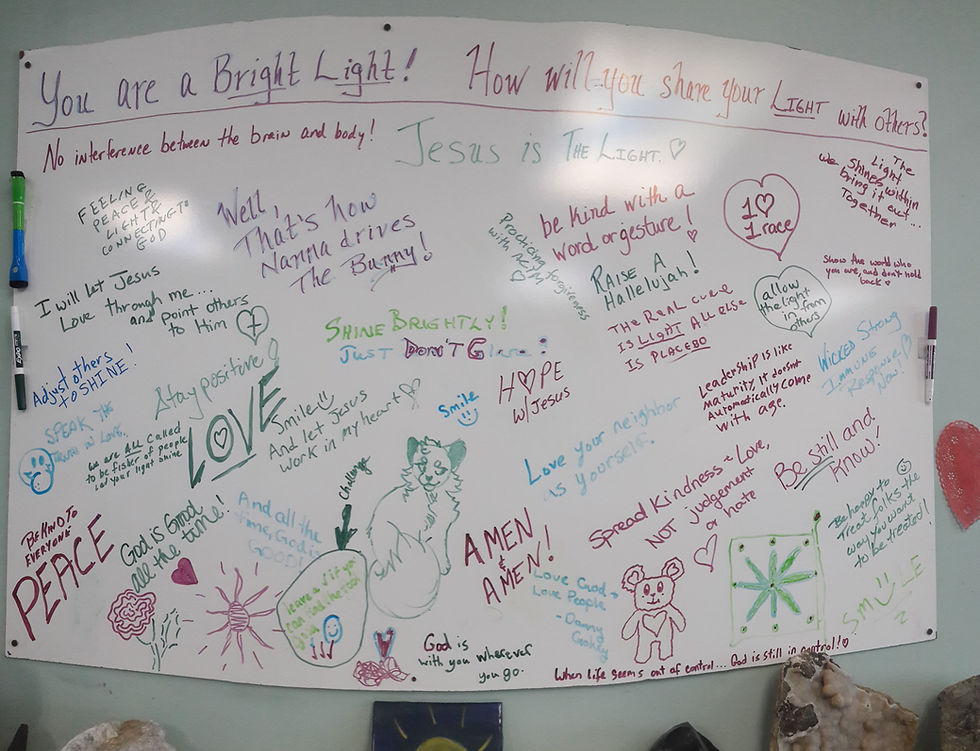 You are a Bright Light!
How will you share your LIGHT with others?
No interference between the brain and body!
Jesus is THE LIGHT.
The
Light
Shines within
we bring it out
Together...
FEELING
PEACE &
LIGHT &
CONNECTING TO
GOD
Well,
That's how
Nanna drives
The Bunny!
Practicing forgiveness
with ACIM
be kind with a
word or gesture!
1
1 race
Show the world who
you are, and don't hold
back
I will let Jesus
Love through me...
and point others
to Him
RAISE A
Hallelujah!
allow
the light
in from
others
THE REAL CURE
IS LIGHT ALL ELSE
IS PLACEBO
SHINE BRIGHTLY!
JUST DON'T
Adjust others
to SHINE!
Stay positive!
LOVE
Smile
And let Jesus
work in my heart
Smile
HOPE
W/JESUS
Leadership is like
maturity, it doesn't
Automatically come
with age.
Wicked Strong
Immune
Response
Now!
SPEAK THE
TRUTH in LOVE.
we are ALL called
to be fisher of people
Let your light shine
Love your neighbor
as yourself.
Be Still and
Know!
challenge
Spread Kindness + Love,
NOT judgement
or hate
Be happy to
Treat folks the
way you want
to be treated!
BE KIND TO
EVERYONE
PEACE
God is Good
all the time!
And all the
time, God is
GOOD!
AMEN
&
AMEN!
leave a if you
can find the
Love God +
Love People
- Danny
Gokey
SMILE
God is
with you wherever
you go.
When life seems out of control... God is still in control!!